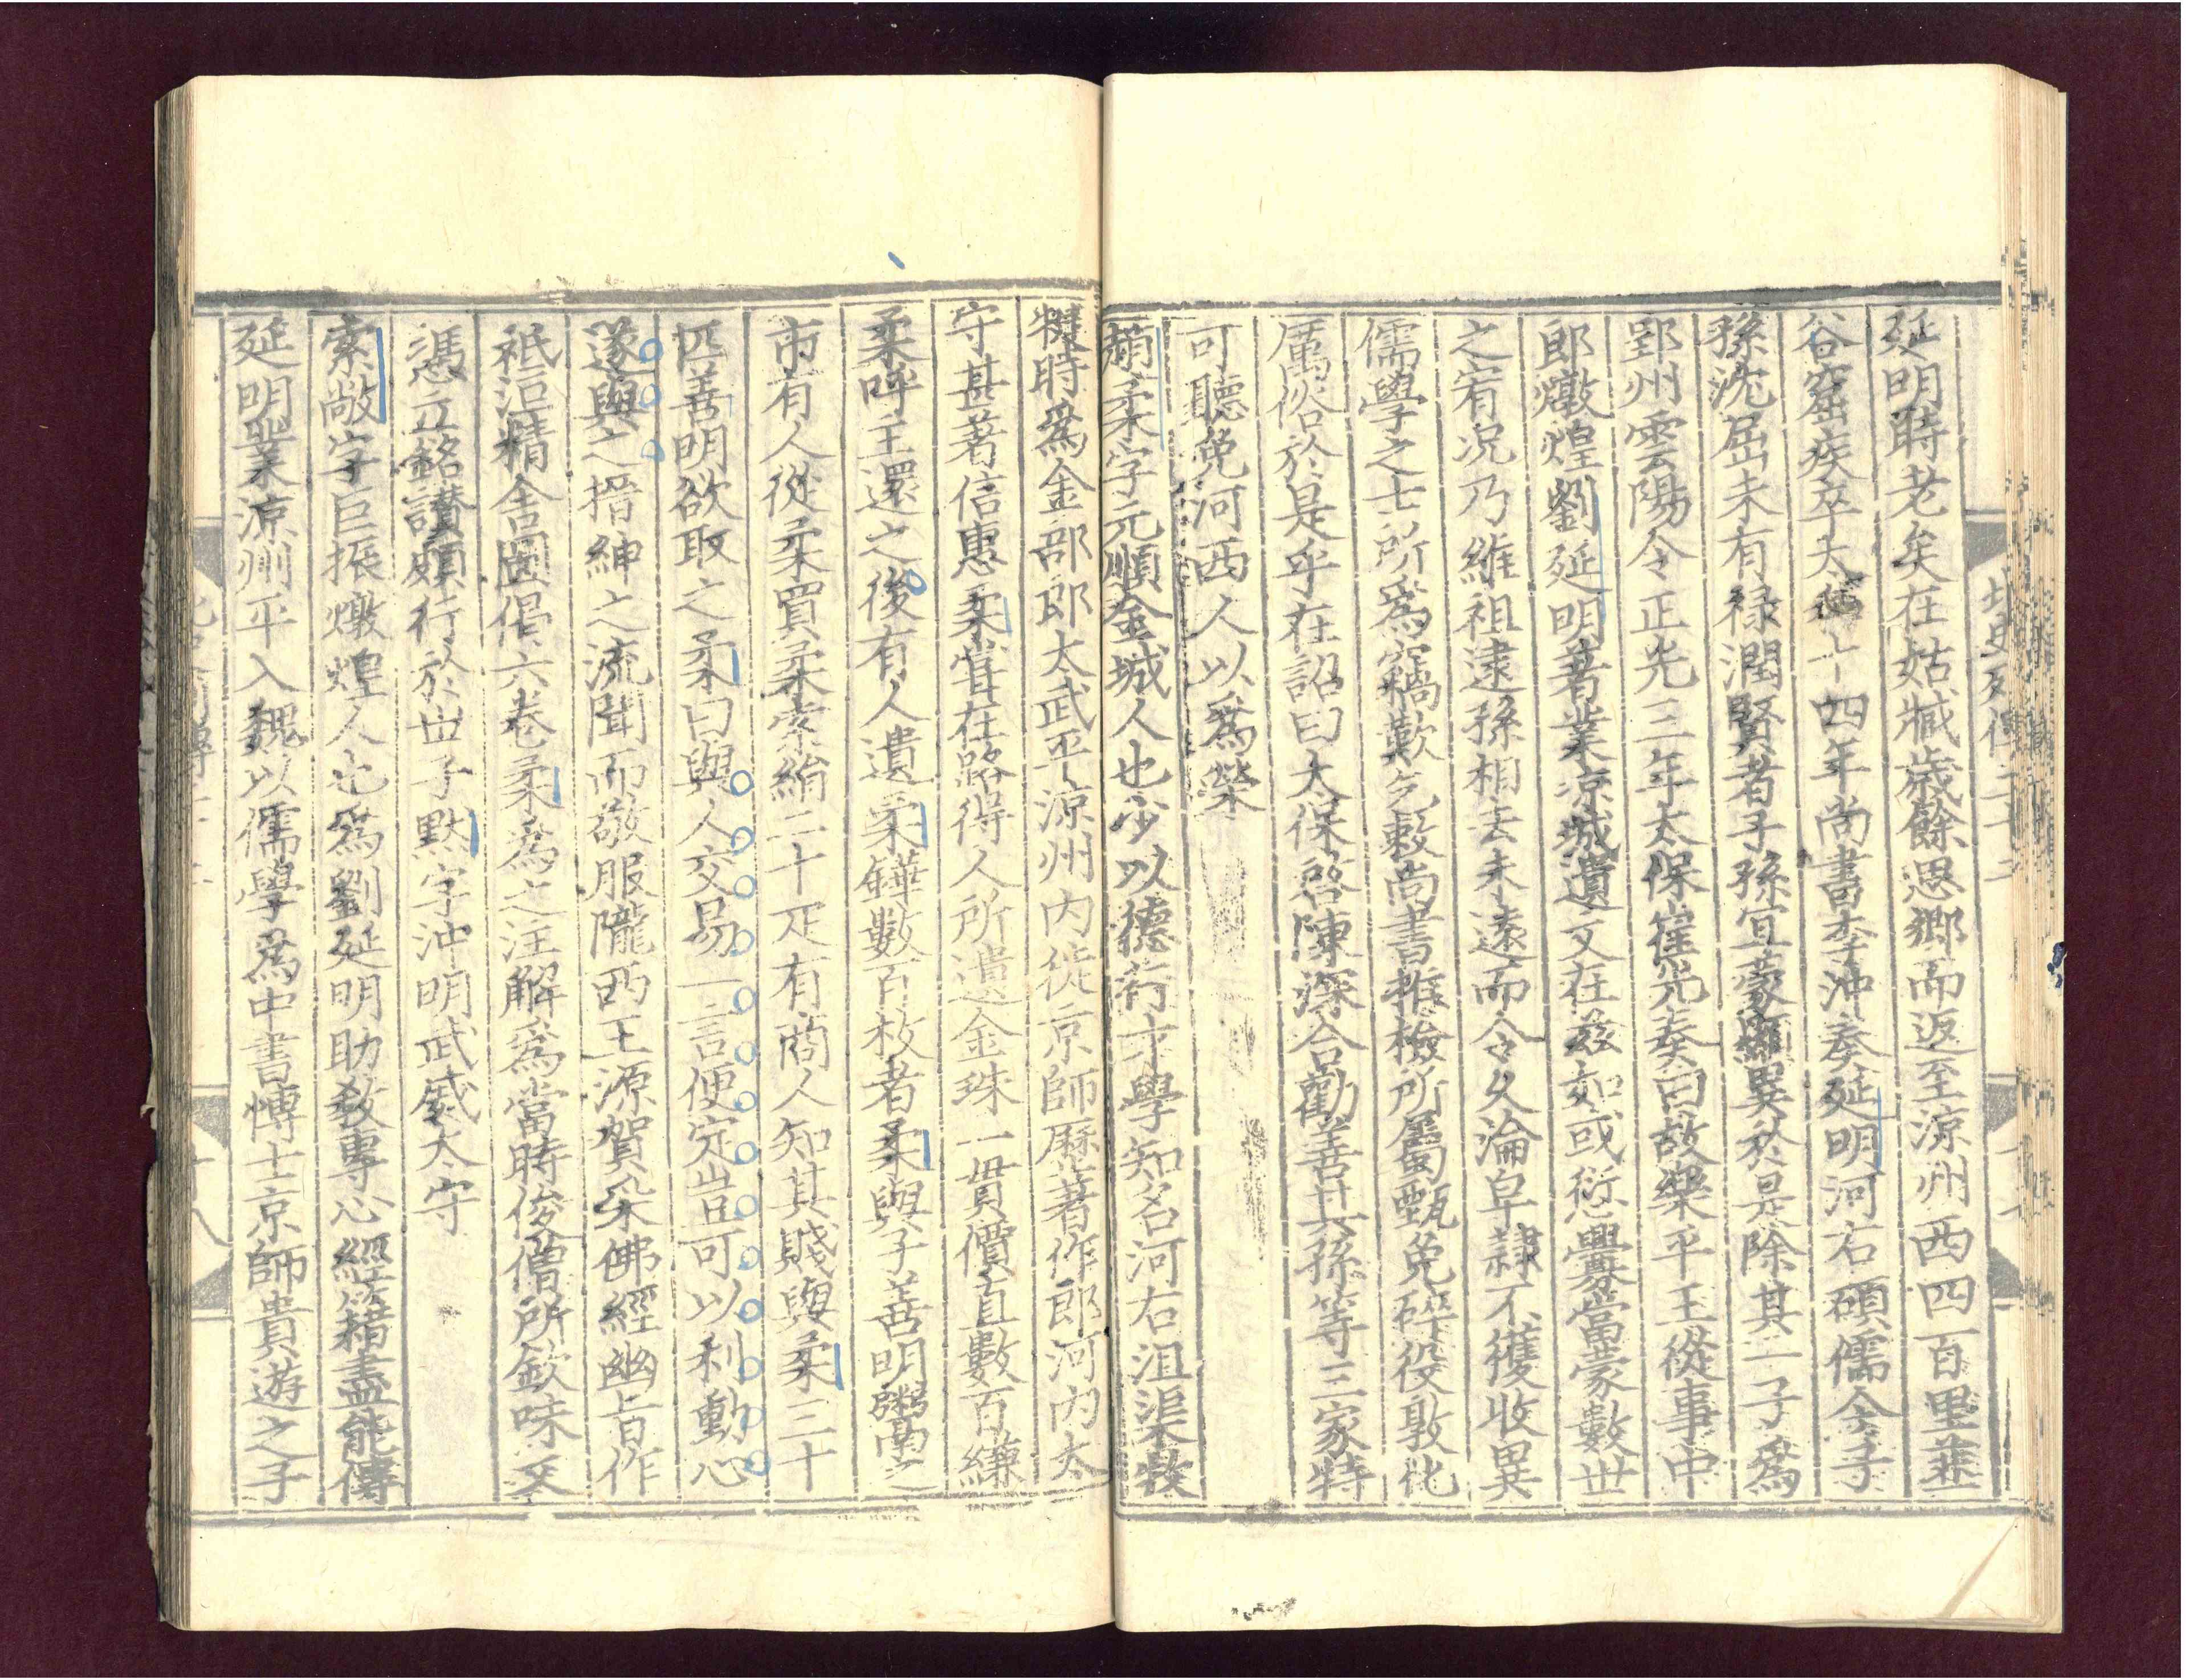 延明時老矣在姑臧歲餘思鄉而返至涼州西四百里韮
谷窟疾卒太十四年尚書李沖奏延明河右碩儒今子
孫沈屈未有祿潤賢者子孫宜蒙顯異於是除其一子爲
郢州雲陽令正光三年太保崔光奏曰故樂平王從事中
郎燉煌劉延明著業涼城遺文在兹如或愆釁當蒙數世
之宥况乃維祖逮孫相去未遠而令久淪皁隸不獲收異
儒學之士所爲竊歎乞敕尚書推檢所屬甄免碎役敦化
厲俗於是乎在詔曰太保啓陳深合勸善其孫等三家特
可聽免河西人以爲榮
趙柔字元順金城人也少以德行才學知名河右沮渠牧
犍時爲金部郎太武平凉州內徙京師歷著作郎河內太
守甚著信惠柔嘗在路得人所遺金珠一貫價直數百縑
柔呼主還之後有人遺柔鏵數百枚者柔與子善明鬻之
市有人從柔買柔索絹二十疋有商人知其賤與柔三十
匹善明欲取之柔曰與人交易一言便定豈可以利動心
遂與之搢紳之流聞而敬服隴西王源賀采佛經幽旨作
祇洹精舍圖偈六卷柔爲之注解爲當時俊僧所欽味又
憑立銘讚頗行於世子默字沖明武威太守
索敞字巨振燉煌人也爲劉延明助敎專心經籍盡能傳
延明業涼州平入魏以儒學爲中書博士京師貴游之子